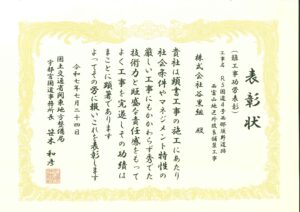 表彰状
(難工事功労表彰)
工事名 R5国道4号西那須野道路
西富山地区外改良舗装工事
株式会社谷黒組 殿
貴社は頭書工事の施工にあたり
社会条件やマネジメント特性の
厳しい工事にもかかわらず秀でた
技術力と旺盛な責任感をもって
よく工事を完遂しその功績は
まことに顕著であります
よってその労に報いこれを表彰します
令和七年七月二十四日
国土交通省関東地方整備局
宇都宮国道事務所長 笹木和彦